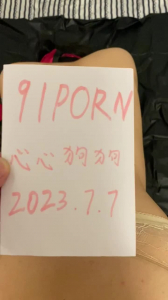 91PORN
心心狗狗
2023.7.7